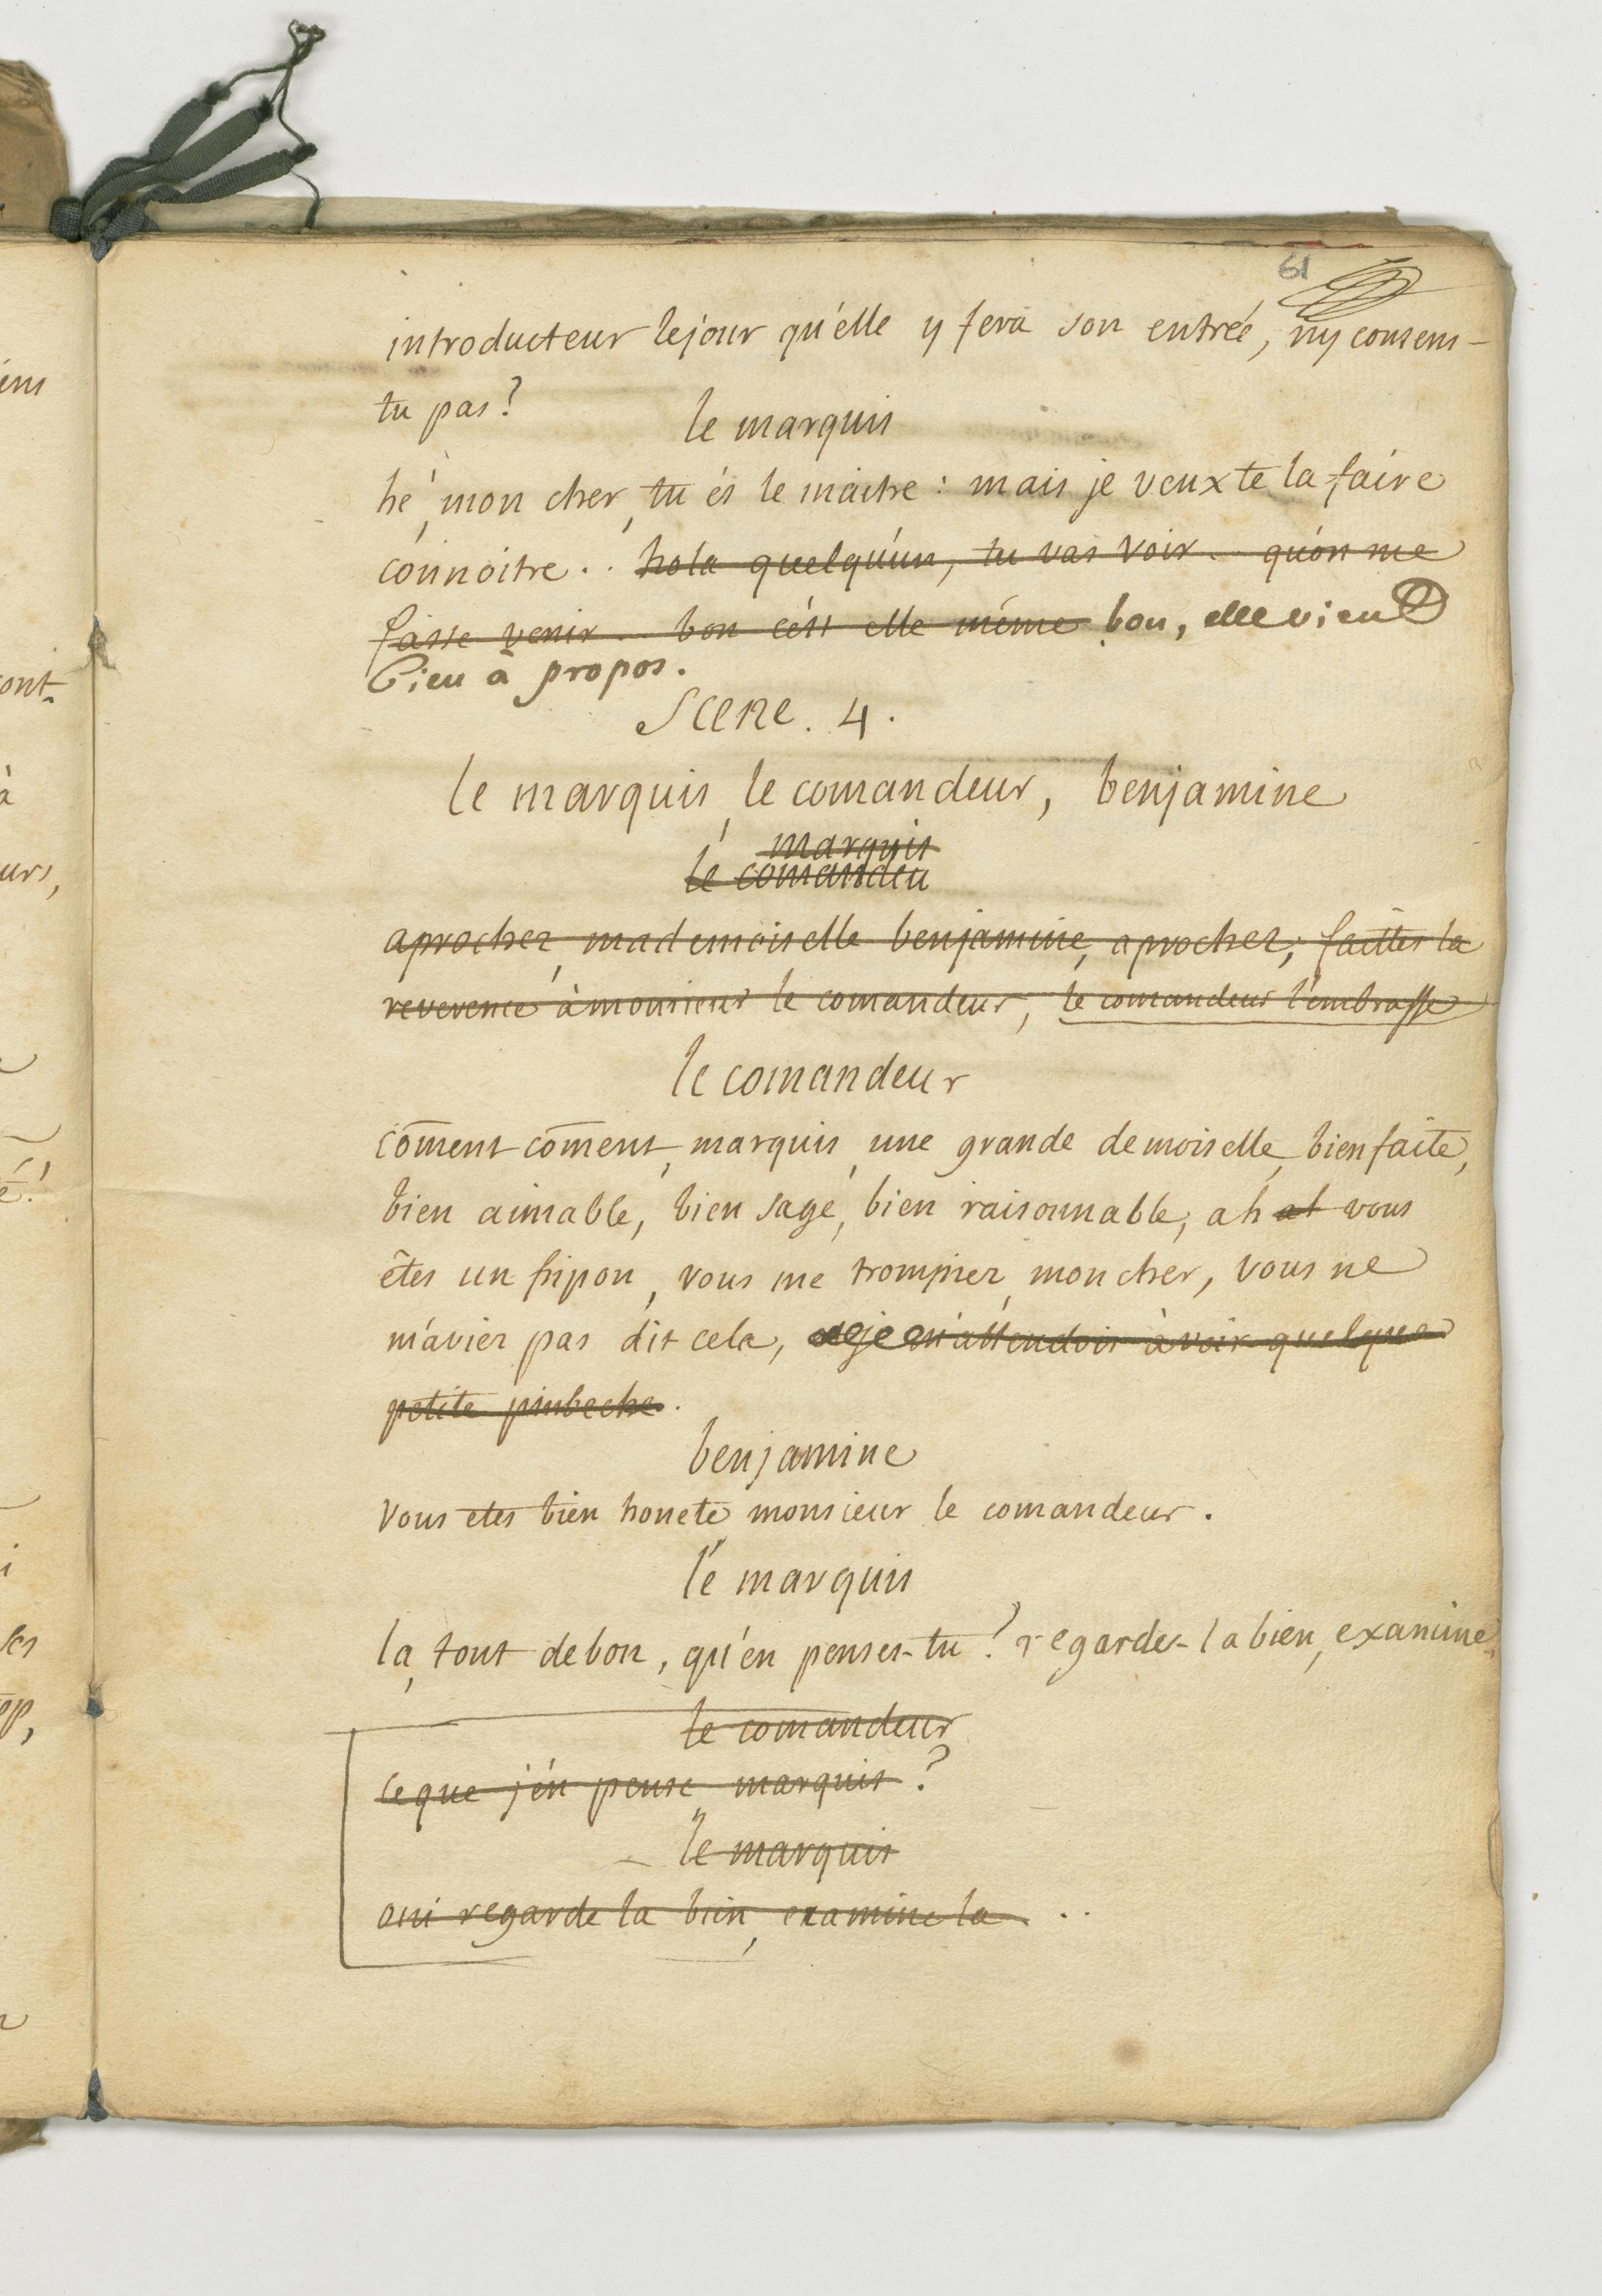 61
introducteur lejour qu'elle y fera son entrée, n'y consens-
tu pas?
le marquis
hé, mon cher, tu és le maitre: mais je veux te la faire
connoitre.. hola quelqu'un, tu vas voir.. qu'on me
fasse venir... bon c'ést elle même bon, elle vient
bien à propos.
Scene. 4.
le marquis, le comandeur, benjamine
marquis
le comandeu
aprochez, mademoiselle benjamine, aprochez, faittes la
reverence à monsieur le comandeur, le comandeur l'embrasse
le comandeur
com̄ent com̄ent, marquis, une grande demoiselle, bien faite,
bien aimable, bien sage, bien raisonnable, ah ah vous
êtes un fripon, vous me trompiez, mon cher, vous ne
m'aviez pas dit cela, je m'attendois à voir quelque
petite pinbeche.
benjamine
vous etes bien honete monsieur le comandeur.
le marquis
la, tout de bon, qu'en penses-tu? regardes-la bien, examine-
le comandeur
ce que j'en pense marquis?
le marquis
oui regarde la bien, examine la...